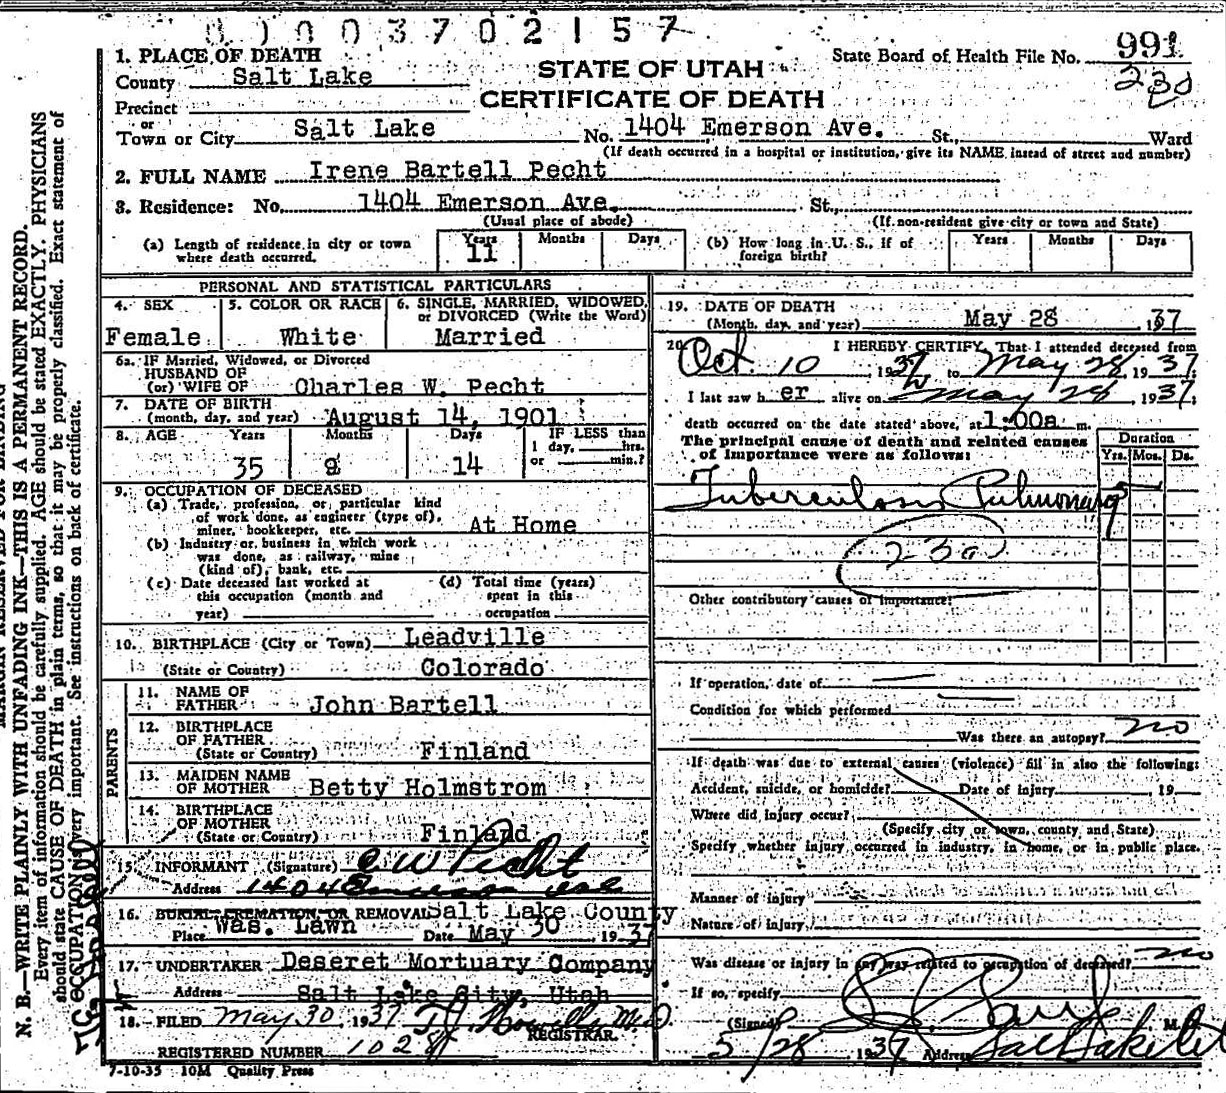 0 1 0 0 3 7 0 2 1 5 7
State Board of Health File No. 991
230
STATE OF UTAH
CERTIFICATE OF DEATH
1. PLACE OF DEATH
County Salt Lake
Precinct
or
Town or City Salt Lake No. 1404 Emerson Ave. St., Ward
(If death occurred in a hospital or institution, give its NAME instead of street and number)
2. FULL NAME Irene Bartell Pecht
3. Residence: No. 1404 Emerson Ave. St.,
(Usual place of abode) (If non-resident give city or town and State)
(a) Length of residence in city or town where death occurred. Years 11 Months Days
(b) How long in U. S., if of foreign birth? Years Months Days
PERSONAL AND STATISTICAL PARTICULARS
4. SEX Female
5. COLOR OR RACE White
6. SINGLE, MARRIED, WIDOWED, or DIVORCED (Write the Word) Married
6a. IF Married, Widowed, or Divorced
HUSBAND OF
(or) WIFE OF Charles W. Pecht
7. DATE OF BIRTH
(month, day, and year) August 14, 1901
8. AGE Years Months Days IF LESS than
35 9 14 1 day, hrs. or min.?
9. OCCUPATION OF DECEASED
(a) Trade, profession, or particular kind
of work done, as engineer (type of),
miner, bookkeeper, etc. At Home
(b) Industry or business in which work
was done, as railway, mine
(kind of), bank, etc.
(c) Date deceased last worked at
this occupation (month and
year)
(d) Total time (years)
spent in this
occupation
10. BIRTHPLACE (City or Town) Leadville
(State or Country) Colorado
PARENTS
11. NAME OF
FATHER John Bartell
12. BIRTHPLACE
OF FATHER
(State or Country) Finland
13. MAIDEN NAME
OF MOTHER Betty Holmstrom
14. BIRTHPLACE
OF MOTHER
(State or Country) Finland
15. INFORMANT (Signature) C W Pecht
Address 1404 Emerson ave
16. BURIAL, CREMATION, OR REMOVAL Salt Lake County
Place Was. Lawn Date May 30 1937
17. UNDERTAKER Deseret Mortuary Company
Address Salt Lake City, Utah
18. FILED May 30, 1937 M.D.
REGISTRAR.
REGISTERED NUMBER 1028
7-10-35 10M Quality Press
19. DATE OF DEATH
(Month, day, and year) May 28 1937
20. I HEREBY CERTIFY, That I attended deceased from
Oct. 10, 1937, to May 28, 1937;
I last saw h er alive on May 28, 1937;
death occurred on the date stated above, at 1:00a m.
The principal cause of death and related causes
of importance were as follows:
Duration
Yrs. Mos. Ds.
Tuberculosis Pulmonary
230
Other contributory causes of importance:
If operation, date of
Condition for which performed
Was there an autopsy? no
If death was due to external causes (violence) fill in also the following:
Accident, suicide, or homicide? Date of injury 19
Where did injury occur?
(Specify city or town, county and State)
Specify whether injury occurred in industry, in home, or in public place.
Manner of injury
Nature of injury
Was disease or injury in any way related to occupation of deceased? no
If so, specify
(Signed) M.
5/28 1937 Address Salt Lake
N. B.—WRITE PLAINLY WITH UNFADING INK—THIS IS A PERMANENT RECORD.
Every item of information should be carefully supplied. AGE should be stated EXACTLY. PHYSICIANS
should state CAUSE OF DEATH in plain terms, so that it may be properly classified. Exact statement of
OCCUPATION very important. See instructions on back of certificate.